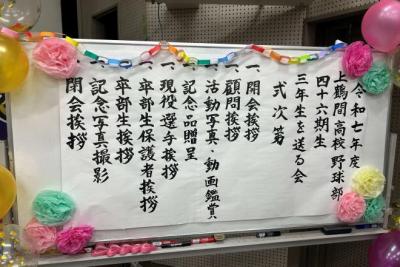 令和七年度
上鶴間高校野球部
四十六期生
三年生を送る会
式次第
一、開会挨拶
一、顧問挨拶
一、活動写真・動画鑑賞
記念品贈呈
一、現役選手挨拶
一、卒部生保護者挨拶
卒部生挨拶
記念写真撮影
閉会挨拶